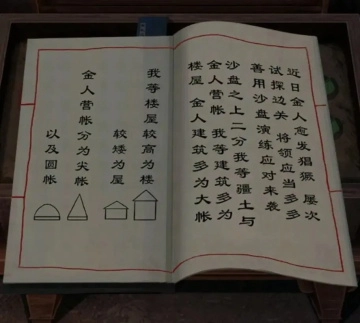 近日金人愈发猖獗 屡次
试探边关 将领应当多多
善用沙盘演练应对来袭
沙盘之上二分我等疆土与
金人营帐 我等建筑多为
楼屋 金人建筑多为大帐
我等楼屋较高为楼
较矮为屋
金人营帐分为尖帐
以及圆帐